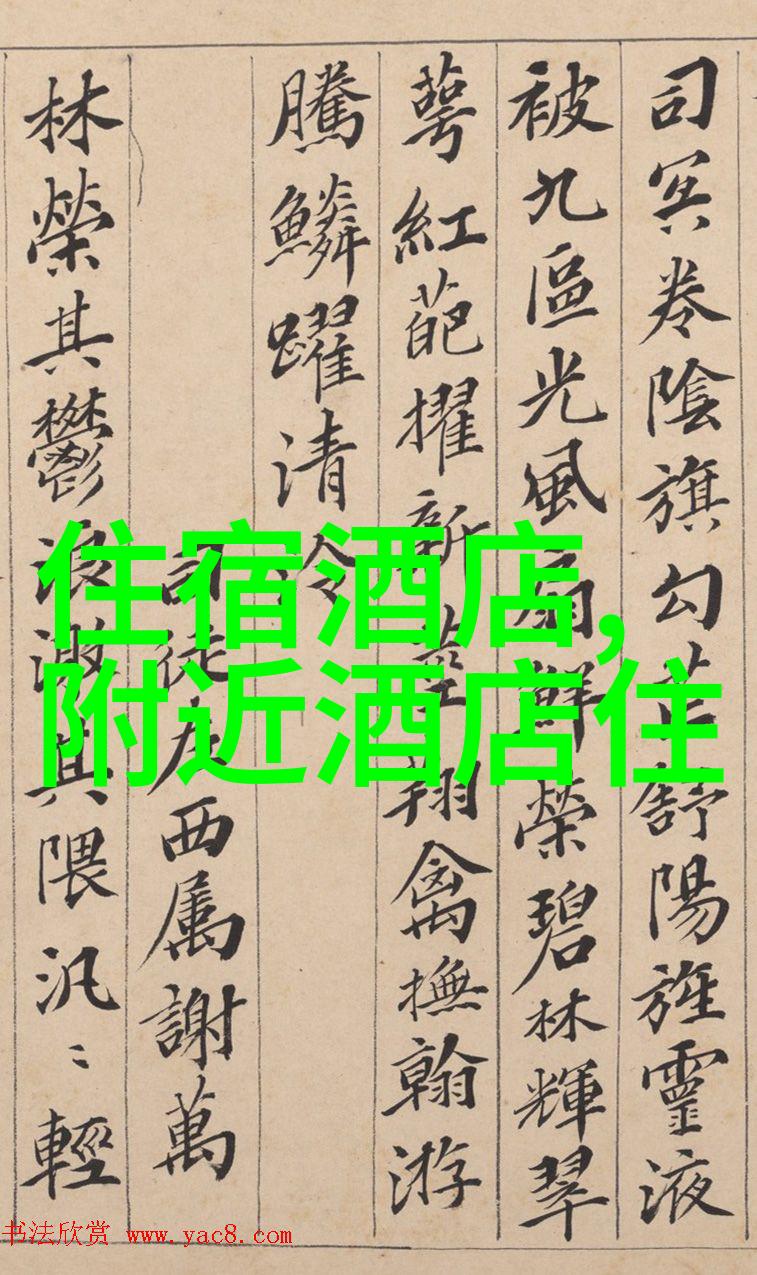 司冥卷陰旗勾芒舒陽旌靈液
被九區光風扇鮮榮碧林輝翠
萼紅葩擢新莖翔禽撫翰游
騰鱗躍清泠
司徒左西属謝萬
林榮其鬱浪激其隈汎〻輕
住宿酒店,
附近酒店住
书法欣赏 www.yac8.com